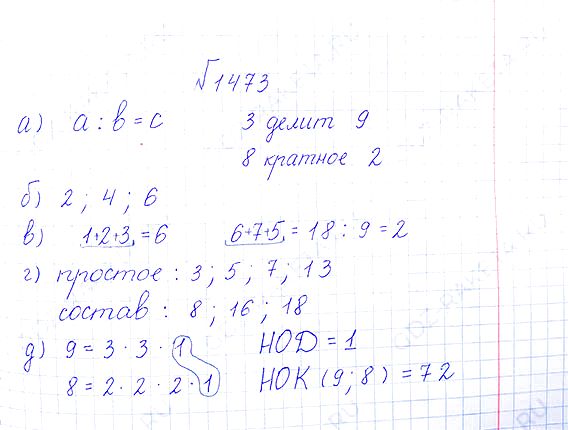 №1473
а) a : b = c 3 делит 9
8 кратное 2
б) 2 ; 4 ; 6
в) 1+2+3 = 6 6+7+5 = 18 : 9 = 2
г) простое : 3 ; 5 ; 7 ; 13
состав : 8 ; 16 ; 18
д) 9 = 3 · 3 · 1 НОД = 1
8 = 2 · 2 · 2 · 1 НОК (9 ; 8) = 72